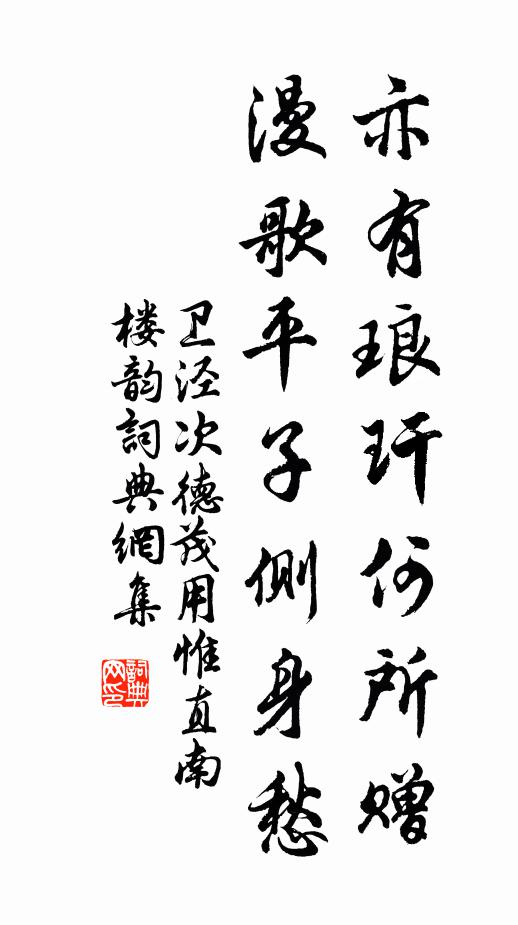 亦有琅玕何所赠
漫歌平子侧身愁
卫泾次德茂用惟直南
楼韵詞典網集
詞典网印